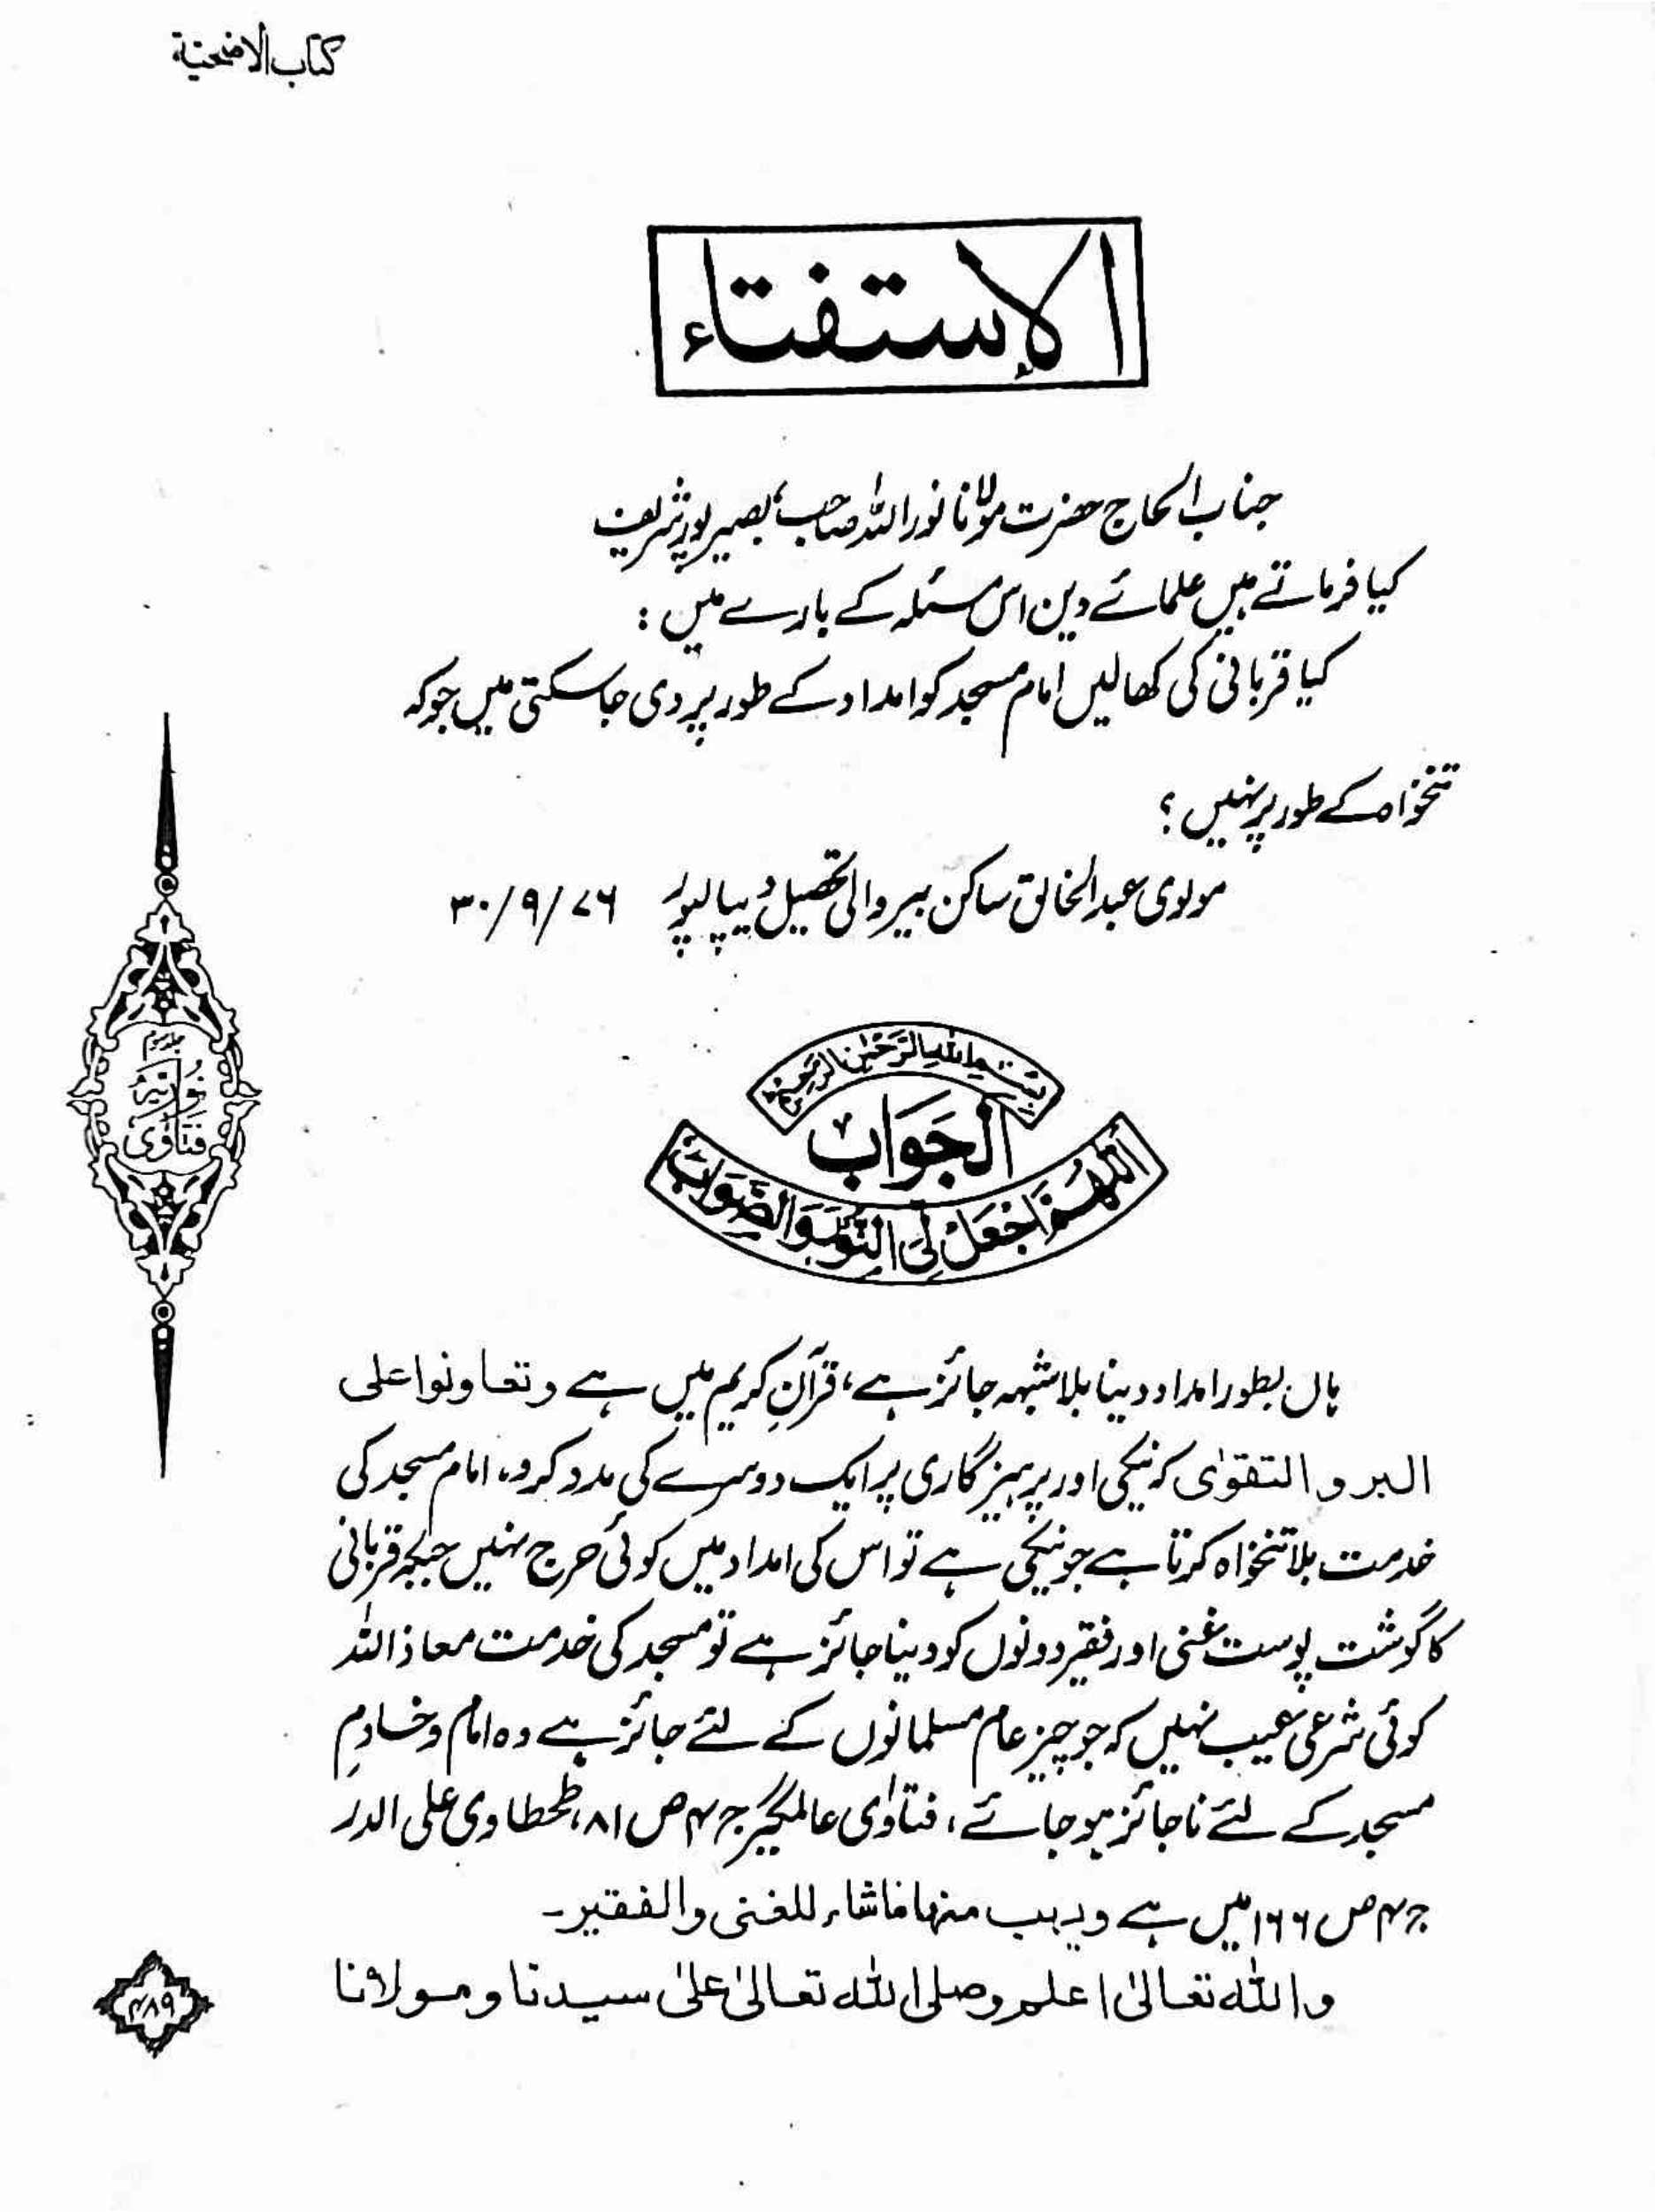 کتاب الاضحیۃ
الاستفتاء
جناب الحاج حضرت مولانا نور اللہ صاحب، بصیر پور شریف
کیا فرماتے ہیں علمائے دین اس مسئلہ کے بارے میں :
کیا قربانی کی کھالیں امام مسجد کو امداد کے طور پر دی جا سکتی ہیں جو کہ
تنخواہ کے طور پر نہیں ؟
مولوی عبد الخالق ساکن بیر والی تحصیل دیپالپور ۳۰/۹/۷۶
بسم اللہ الرحمٰن الرحیم
الجواب
اللهم اجعل لی النور والصواب
فتاوٰی نوریہ
ہاں بطور امداد دینا بلا شبہہ جائز ہے، قرآنِ کریم میں ہے وتعاونوا علی
البر والتقوٰی کہ نیکی اور پرہیزگاری پر ایک دوسرے کی مدد کرو، امام مسجد کی
خدمت بلا تنخواہ کرتا ہے جو نیکی ہے تو اس کی امداد میں کوئی حرج نہیں جبکہ قربانی
کا گوشت پوست غنی اور فقیر دونوں کو دینا جائز ہے تو مسجد کی خدمت معاذ اللہ
کوئی شرعی عیب نہیں کہ جو چیز عام مسلمانوں کے لئے جائز ہے وہ امام و خادمِ
مسجد کے لئے ناجائز ہو جائے، فتاوٰی عالمگیر ج ۴ ص ۸۱، طحطاوی علی الدر
ج ۴ ص ۱۶۶ میں ہے ویہب منہا ماشاء للغنی والفقیر۔
واللہ تعالیٰ اعلم وصلی اللہ تعالیٰ علیٰ سیدنا ومولانا
۴۸۹